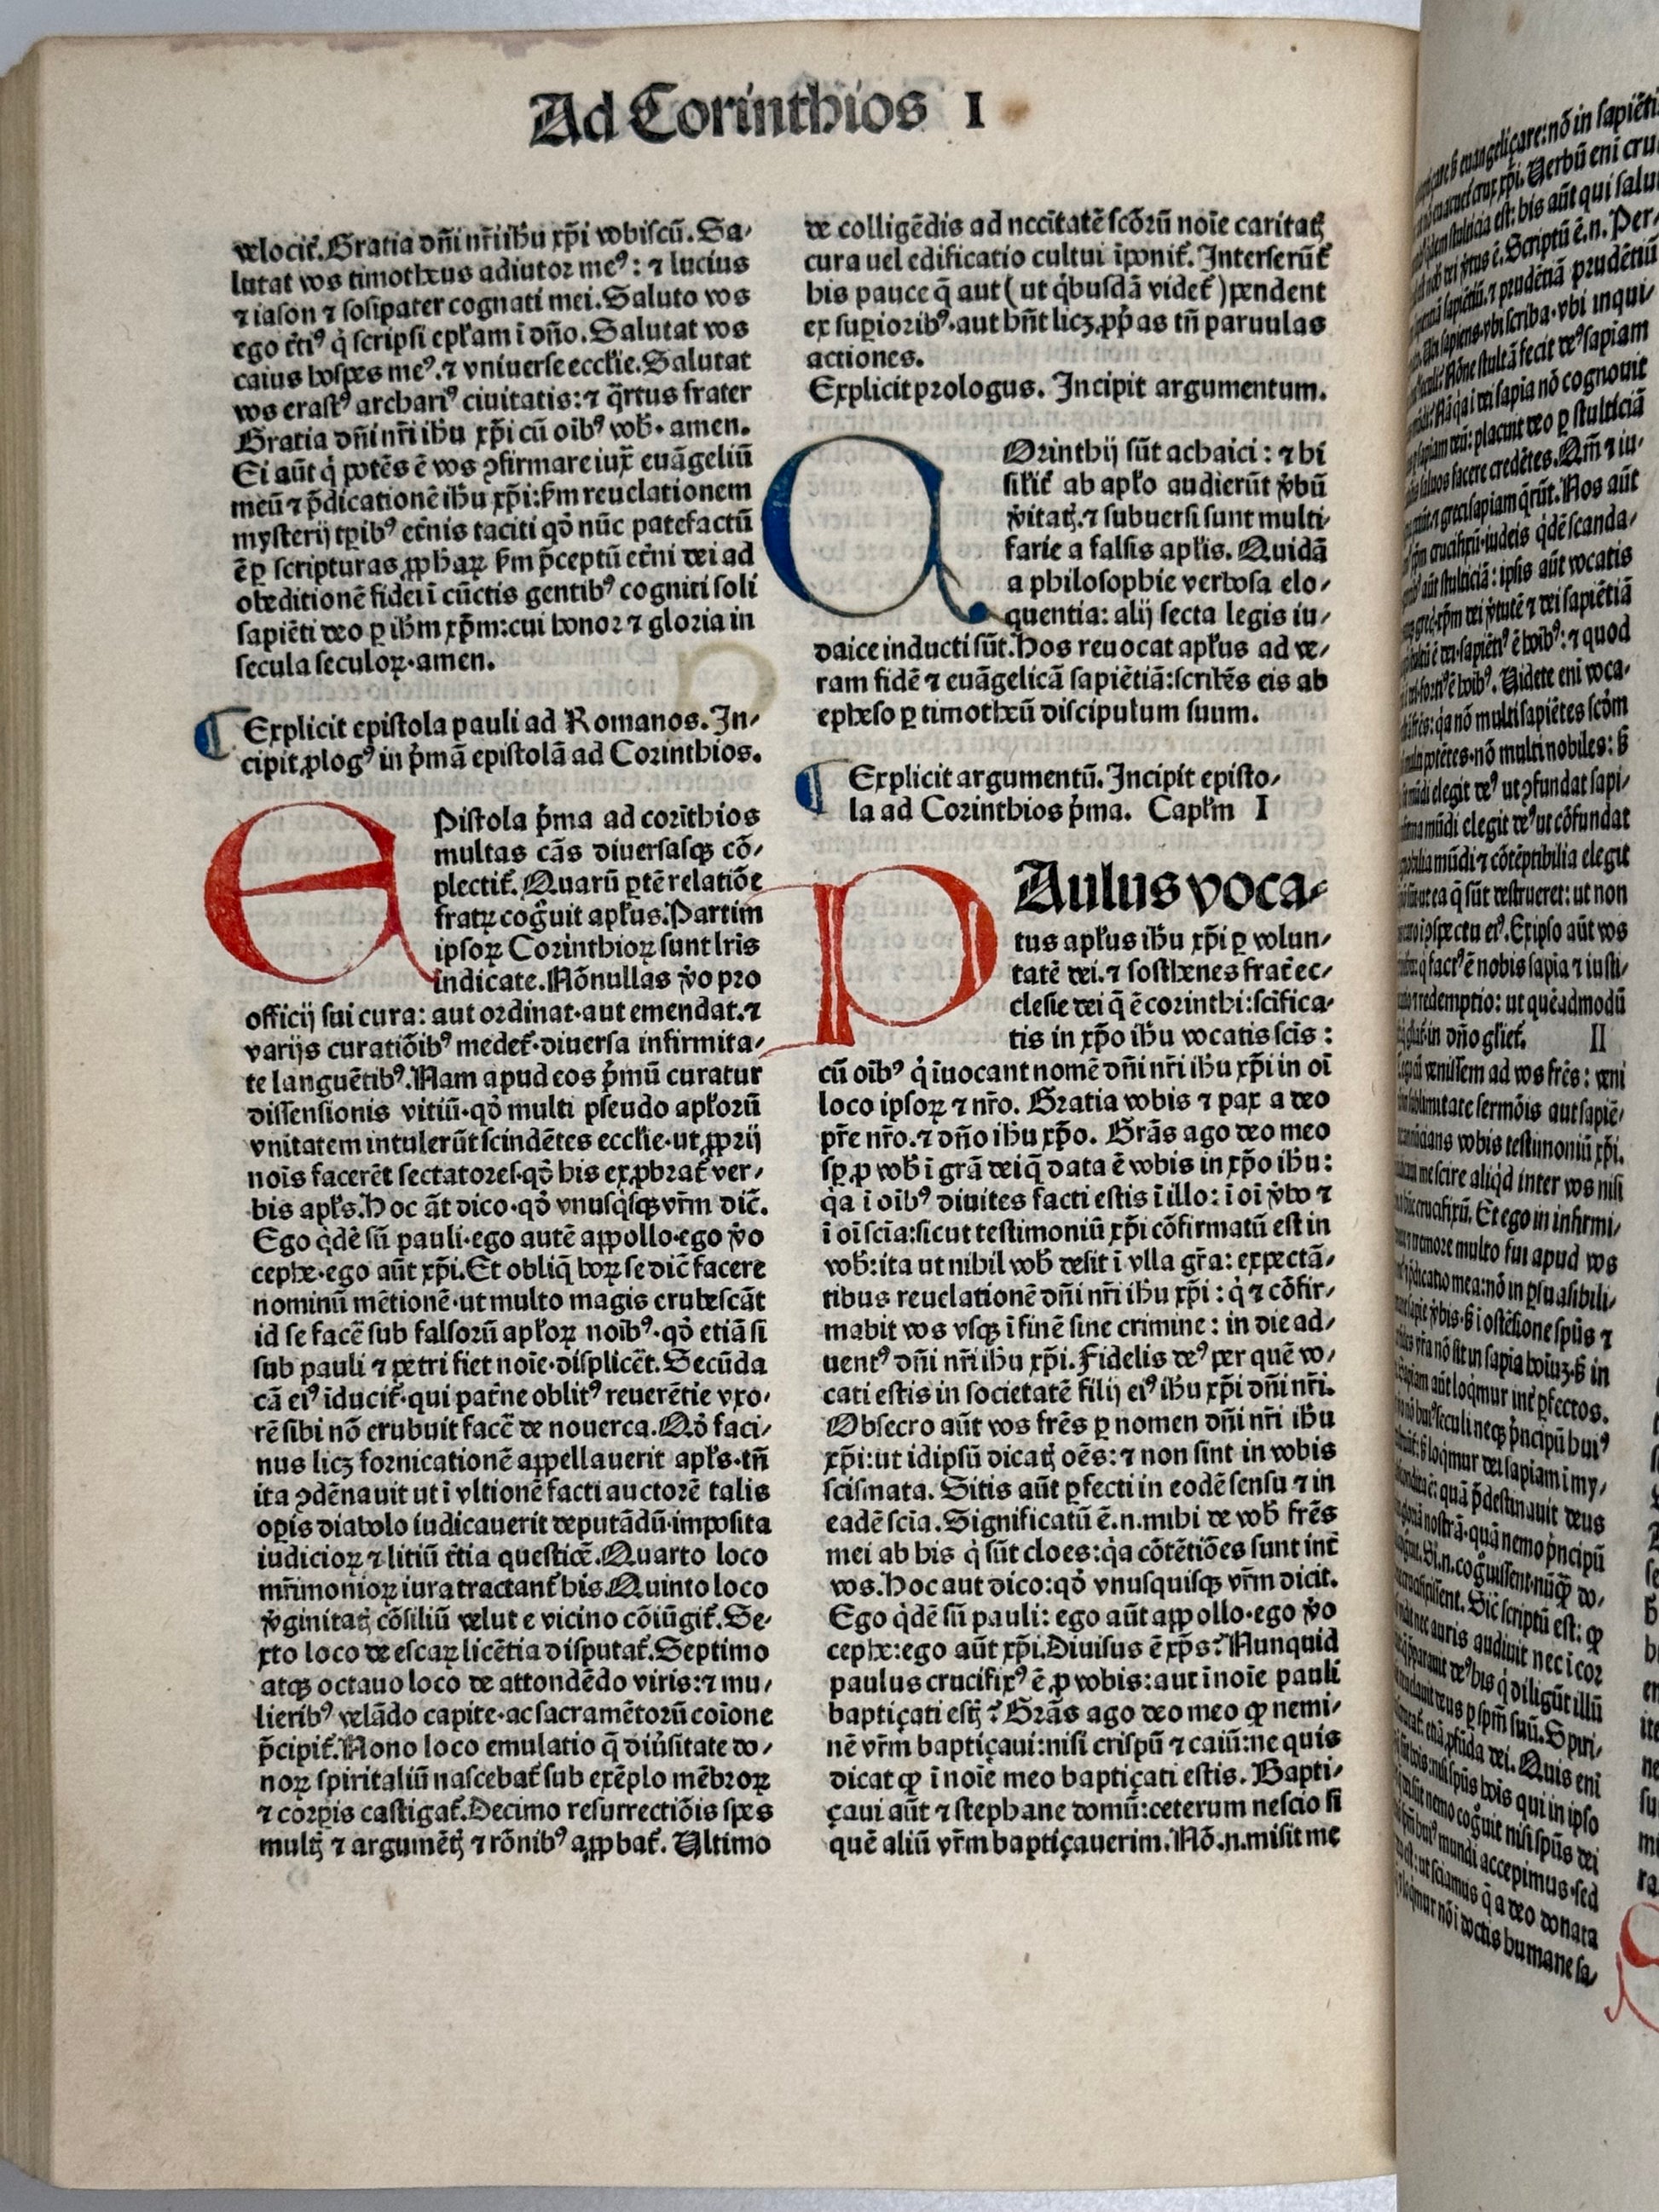 Ad Corinthios I
velocit̃. Gratia dñi nr̃i ihũ xp̃i vobiscũ. Sa-
lutat vos timotheus adiutor meꝰ: ⁊ lucius
⁊ iason ⁊ sosipater cognati mei. Saluto vos
ego t̃tiꝰ q̇ scripsi epl̃am ĩ dño. Salutat vos
caius hospes meꝰ. ⁊ vniuerse eccl̃ie. Salutat
vos erastꝰ archariꝰ ciuitatis: ⁊ q̃rtus frater
Gratia dñi nr̃i ihũ xp̃i cũ oibꝰ vob̃. amen.
Ei aũt q̇ potẽs ẽ vos ꝯfirmare iux̃ euãgeliũ
meũ ⁊ p̃dicationẽ ihũ xp̃i: ẞm reuelationem
mysterij tꝑibꝰ et̃nis taciti qď nũc patefactũ
ẽ ꝑ scripturas ꝓphaꝝ ẞm p̃ceptũ et̃ni dei ad
obeditionẽ fidei ĩ cũctis gentibꝰ cogniti soli
sapiẽti deo ꝑ ih̃m xp̃m: cui honor ⁊ gloria in
secula seculoꝝ. amen.
¶ Explicit epistola pauli ad Romanos. In-
cipit ꝓlogꝰ in p̓mã epistolã ad Corinthios.
EPistola p̓ma ad corĩthios
multas cãs diuersasqꝫ cõ-
plectit̃. Quarũ ꝑtẽ relatiõe
fratꝝ cog̃uit apl̃us. Partim
ipsoꝝ Corinthioꝝ sunt lr̃is
indicate. Nõnullas v̓o pro
officij sui cura: aut ordinat. aut emendat. ⁊
varijs curatiõibꝰ medet̃. diuersa infirmita-
te languẽtibꝰ. Nam apud eos p̓mũ curatur
dissensionis vitiũ. qď multi pseudo apl̃orũ
vnitatem intulerũt scindẽtes eccl̃ie. ut ꝓprij
nois̃ facerẽt sectatores. qď his exꝓbrat̃ ver-
bis apl̃s. Hoc ãt dico. qď vnusq̇sqꝫ vr̃m dic̃.
Ego q̇dẽ sũ pauli. ego autẽ appollo. ego v̓o
cephe. ego aũt xp̃i. Et obliq̃ hoꝝ se dic̃ facere
nominũ mẽtionẽ. ut multo magis erubescãt
id se facẽ sub falsorũ apl̃oꝝ noĩbꝰ. qď etiã si
sub pauli ⁊ petri fiet noĩe. displicẽt. Secũda
cã eiꝰ ĩducit̃. qui pat̃ne oblitꝰ reuerẽtie vxo-
rẽ sibi nõ erubuit facẽ de nouerca. Qď faci-
nus licꝫ fornicationẽ appellauerit apl̃s. tñ
ita ꝯdẽnauit ut ĩ vltionẽ facti auctorẽ talis
opis̃ diabolo iudicauerit deputãdũ. imposita
iudicioꝝ ⁊ litiũ t̃tia questiõe. Quarto loco
mr̃imonioꝝ iura tractant̃ his. Quinto loco
v̓ginitatꝭ cõsiliũ velut e vicino cõiũgit̃. Se-
xto loco de escaꝝ licẽtia disputat̃. Septimo
atqꝫ octauo loco de attondẽdo viris: ⁊ mu-
lieribꝰ velãdo capite. ac sacramẽtorũ coĩone
p̃cipit̃. Nono loco emulatio q̃ diũsitate do-
noꝝ spiritaliũ nascebat̃ sub exẽplo mẽbroꝝ
⁊ corꝑis castigat̃. Decimo resurrectiõis spes
multꝭ ⁊ argumẽtꝭ ⁊ rõnibꝰ aꝓbat̃. Ultimo
de colligẽdis ad nccĩtatẽ scõrũ noĩe caritatꝭ
cura uel edificatio cultui ĩponit̃. Interserũt̃
his pauce q̃ aut (ut q̇busdã videt̃) pendent
ex suꝑioribꝰ. aut hñt licꝫ ꝓp̃as tñ paruulas
actiones.
Explicit prologus. Incipit argumentum.
COrinthij sũt achaici: ⁊ hi
sil̃it̃ ab apl̃o audierũt v̓bũ
v̓itatꝭ. ⁊ subuersi sunt multi-
farie a falsis apl̃is. Quidã
a philosophie verbosa elo-
quentia: alij secta legis iu-
daice inducti sũt. Hos reuocat apl̃us ad ve-
ram fidẽ ⁊ euãgelicã sapiẽtiã: scribẽs eis ab
epheso ꝑ timotheũ discipulum suum.
¶ Explicit argumentũ. Incipit episto-
la ad Corinthios p̓ma. Capl̃m I
PAulus voca-
tus apl̃us ihũ xp̃i ꝑ volun-
tatẽ dei. ⁊ sosthenes frat̃ ec-
clesie dei q̃ ẽ corinthi: scĩfica-
tis in xp̃o ihũ vocatis scĩs:
cũ oĩbꝰ q̇ ĩuocant nomẽ dñi nr̃i ihũ xp̃i in oĩ
loco ipsoꝝ ⁊ nr̃o. Gratia vobis ⁊ pax a deo
pr̃e nr̃o. ⁊ dño ihũ xp̃o. Grãs ago deo meo
sꝑ ꝓ vob̃ ĩ grã dei q̃ data ẽ vobis in xp̃o ihũ:
q̇a ĩ oĩbꝰ diuites facti estis ĩ illo: ĩ oĩ v̓bo ⁊
ĩ oĩ scĩa: sicut testimoniũ xp̃i cõfirmatũ est in
vob̃: ita ut nihil vob̃ desit ĩ vlla gr̃a: expectã-
tibus reuelationẽ dñi nr̃i ihũ xp̃i: q̇ ⁊ cõfir-
mabit vos vsqꝫ ĩ finẽ sine crimine: in die ad-
uentꝰ dñi nr̃i ihũ xp̃i. Fidelis deꝰ per quẽ vo-
cati estis in societatẽ filij eiꝰ ihũ xp̃i dñi nr̃i.
Obsecro aũt vos frẽs ꝑ nomen dñi nr̃i ihũ
xp̃i: ut idipsũ dicatꝭ oẽs: ⁊ non sint in vobis
scismata. Sitis aũt ꝑfecti in eodẽ sensu ⁊ in
eadẽ scĩa. Significatũ ẽ .n. mihi de vob̃ frẽs
mei ab his q̇ sũt cloes: q̇a cõtẽtiões sunt int̃
vos. Hoc aut dico: qď vnusquisqꝫ vr̃m dicit.
Ego q̇dẽ sũ pauli: ego aũt appollo. ego v̓o
cephe: ego aũt xp̃i. Diuisus ẽ xp̃s? Nunquid
paulus crucifixꝰ ẽ ꝓ vobis: aut ĩ noĩe pauli
baptiçati estꝭ? Grãs ago deo meo ꝙ nemi-
nẽ vr̃m baptiçaui: nisi crispũ ⁊ caiũ: ne quis
dicat ꝙ ĩ noĩe meo baptiçati estis. Bapti-
çaui aũt ⁊ stephane domũ: ceterum nescio si
quẽ aliũ vr̃m baptiçauerim. Nõ .n. misit me